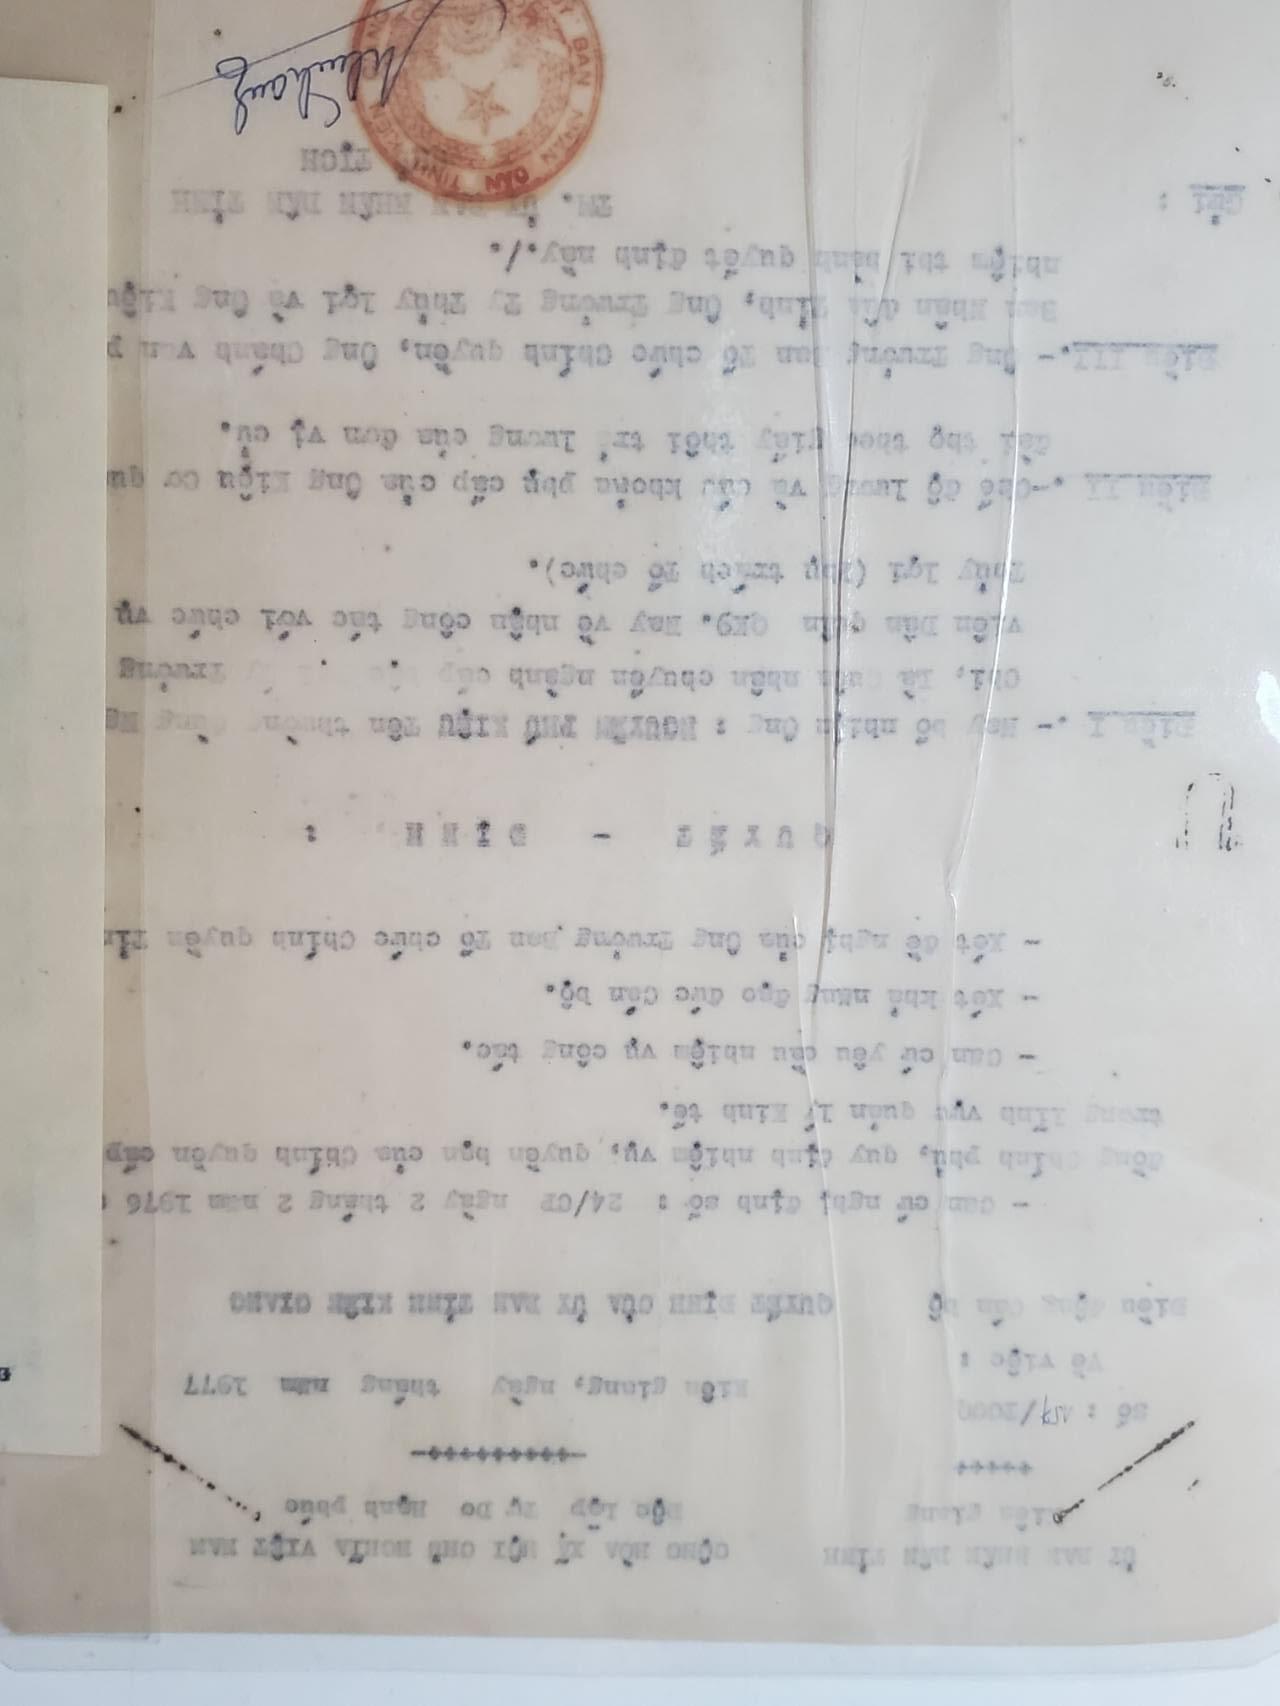 ỦY BAN NHÂN DÂN TỈNH
Kiên giang
+++++
Số : 157/2000
Về việc :
Điều động cán bộ
CỘNG HÒA XÃ HỘI CHỦ NGHĨA VIỆT NAM
Độc Lập Tự Do Hạnh phúc
-++++++++++-
Kiên giang, ngày tháng năm 1977
QUYẾT ĐỊNH CỦA ỦY BAN TỈNH KIÊN GIANG
- Căn cứ nghị định số : 24/CP ngày 2 tháng 2 năm 1976
đồng Chính phủ, quy định nhiệm vụ, quyền hạn của Chính quyền cấp
trong lĩnh vực quản lý Kinh tế.
- Căn cứ yêu cầu nhiệm vụ công tác.
- Xét khả năng đạo đức Cán bộ.
- Xét đề nghị của Ông Trưởng Ban Tổ chức Chính quyền Tỉn
QUYẾT - ĐỊNH :
Điều I .- Nay bổ nhiệm Ông : NGUYỄN PHÚ KIỆU Tên thường dùng
Chi, là Quân nhân chuyển ngành cấp bậc Trưởng
viên Dân quân QK9. Nay về nhận công tác với chức vụ
Thủy lợi (Phụ trách Tổ chức).
Điều II .-Chế độ lương và các khoản phụ cấp của Ông Kiệu Cơ qua
đài thọ theo giấy thôi trả lương của đơn vị cũ.
Điều III.- Ông Trưởng Ban Tổ chức Chính quyền, Ông Chánh Văn p
Ban Nhân dân Tỉnh, Ông Trưởng Ty Thủy lợi và Ông Kiệu
nhiệm thi hành quyết định này./.
Gửi :
TM. ỦY BAN NHÂN DÂN TỈNH
TỊCH
ỦY BAN NHÂN DÂN TỈNH KIÊN